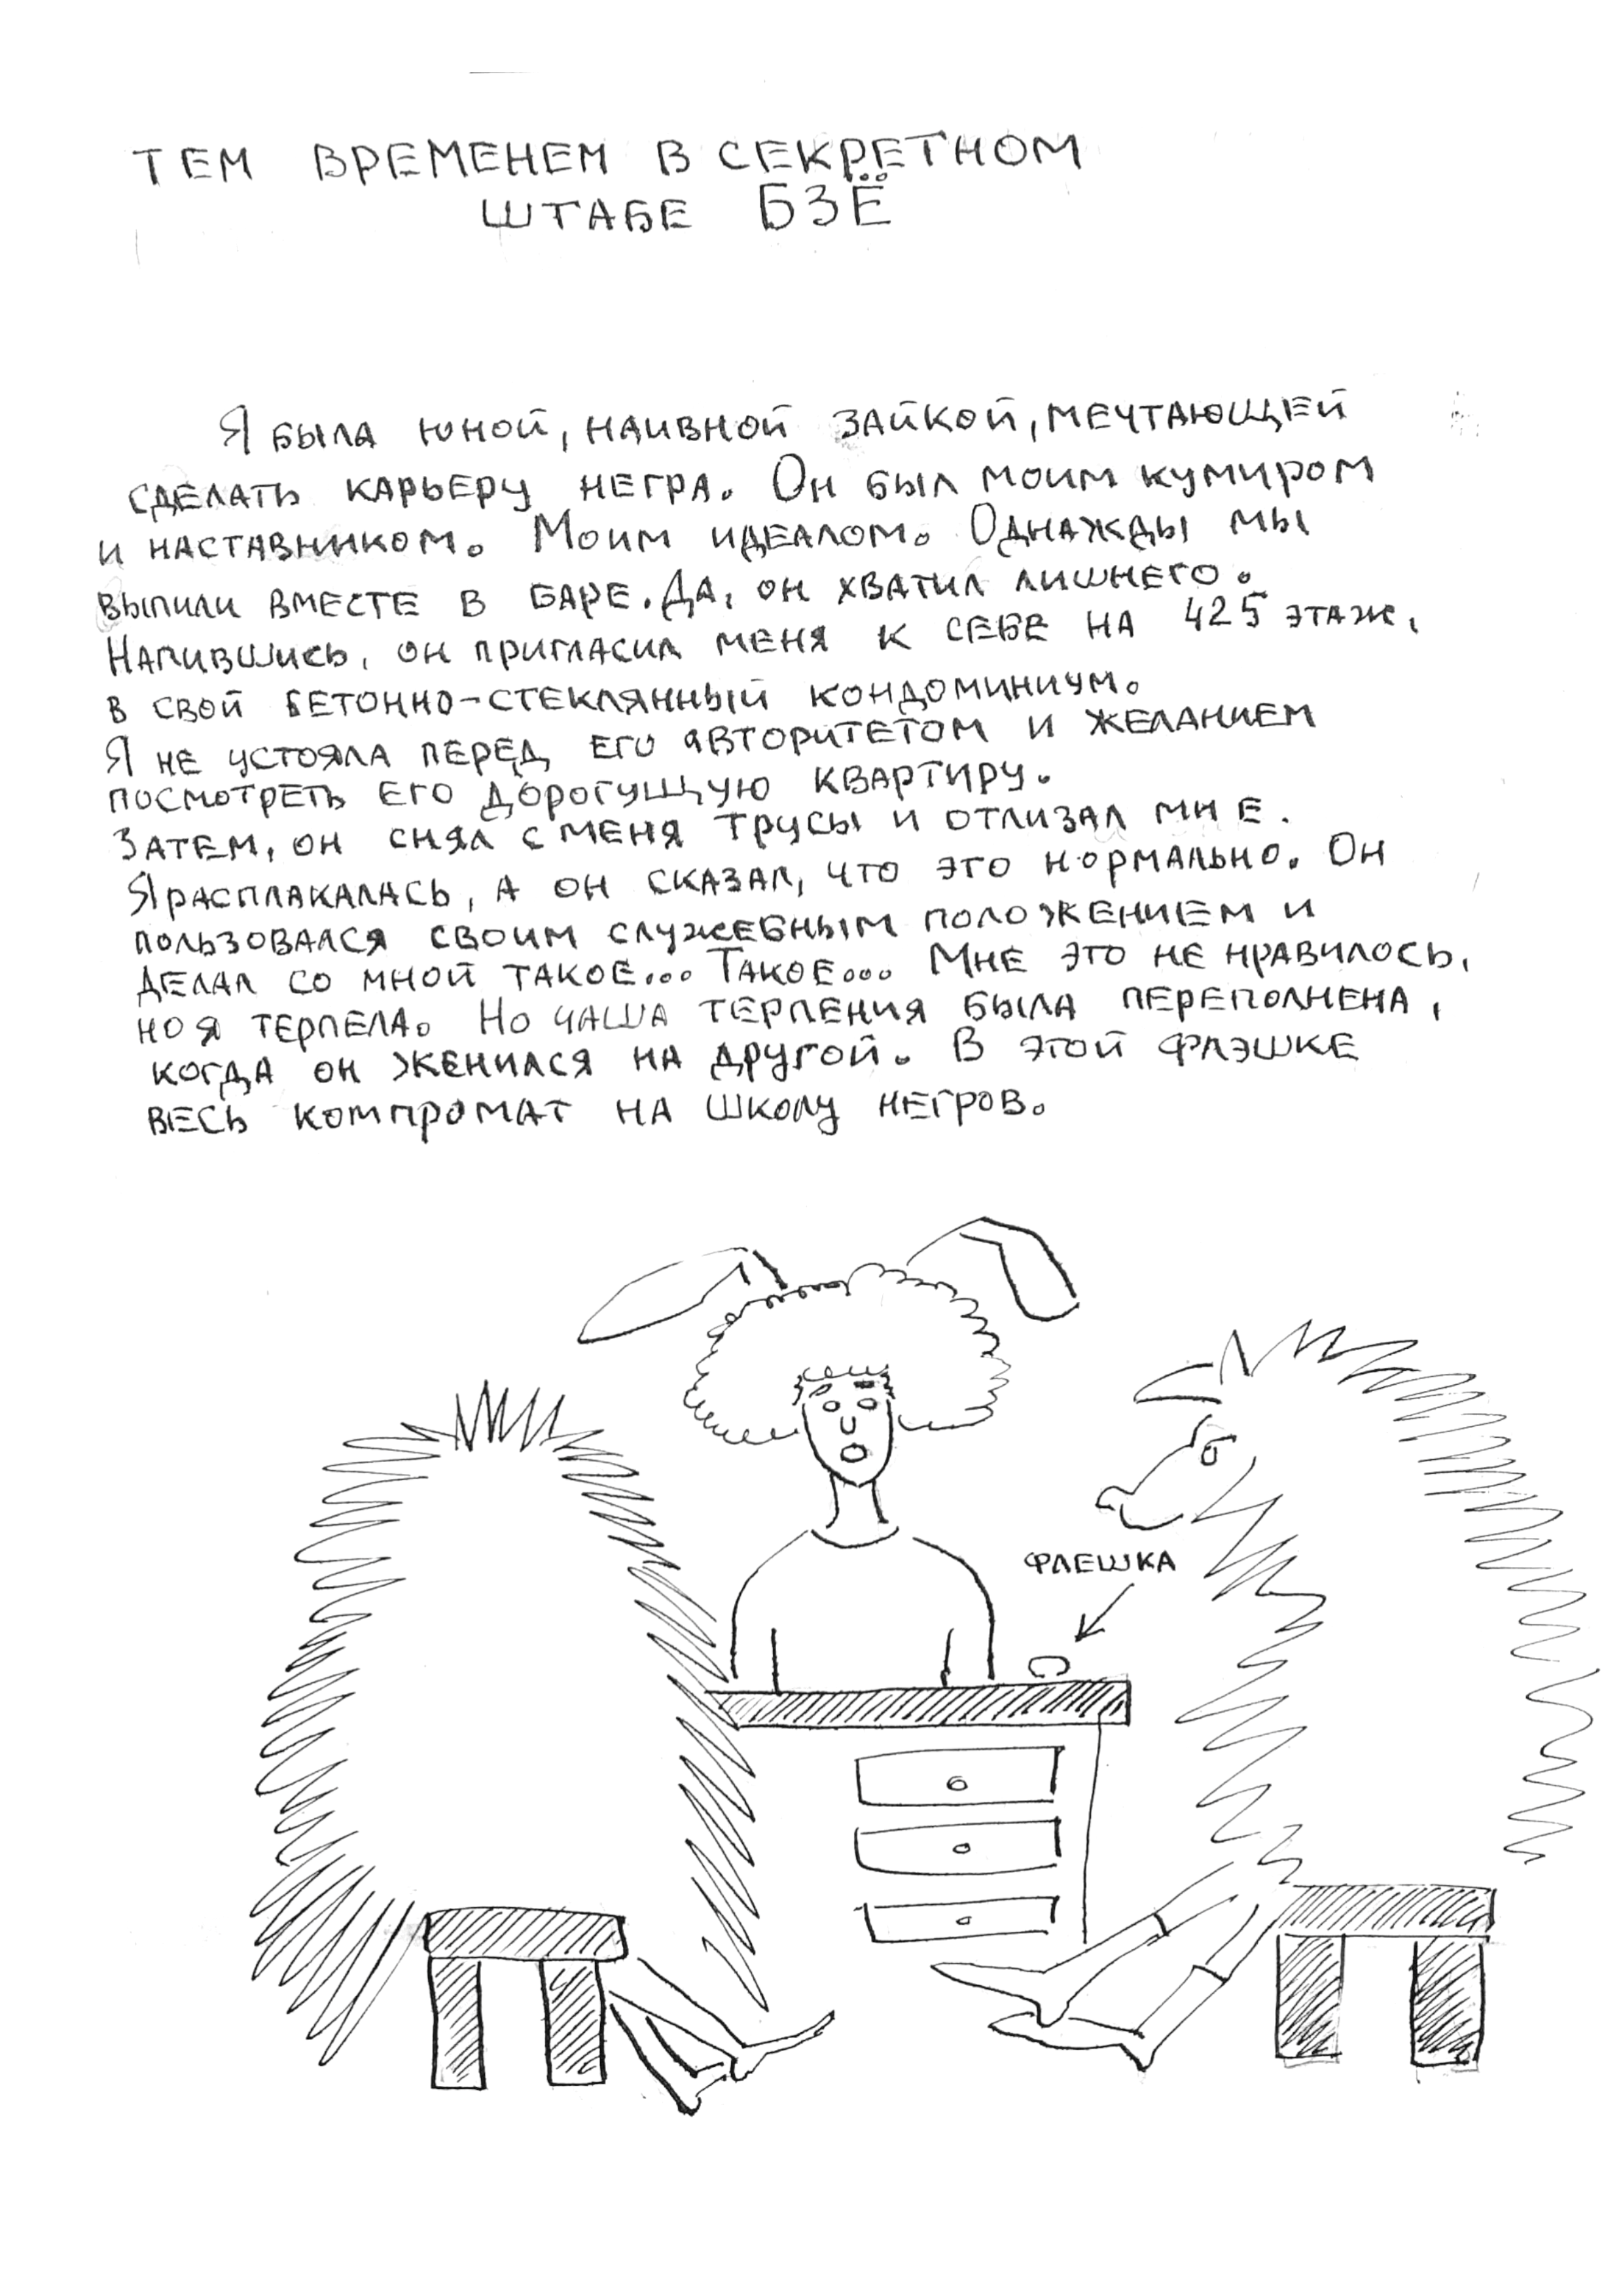 ТЕМ ВРЕМЕНЕМ В СЕКРЕТНОМ
ШТАБЕ БЗЁ
Я была юной, наивной зайкой, мечтающей
сделать карьеру негра. Он был моим кумиром
и наставником. Моим идеалом. Однажды мы
выпили вместе в баре. Да, он хватил лишнего.
Напившись, он пригласил меня к себе на 425 этаж,
в свой бетонно-стеклянный кондоминиум.
Я не устояла перед его авторитетом и желанием
посмотреть его дорогущую квартиру.
Затем, он снял с меня трусы и отлизал мне.
Я расплакалась, а он сказал, что это нормально. Он
пользовался своим служебным положением и
делал со мной такое... Такое... Мне это не нравилось,
но я терпела. Но чаша терпения была переполнена,
когда он женился на другой. В этой флэшке
весь компромат на школу негров.
ФЛЕШКА